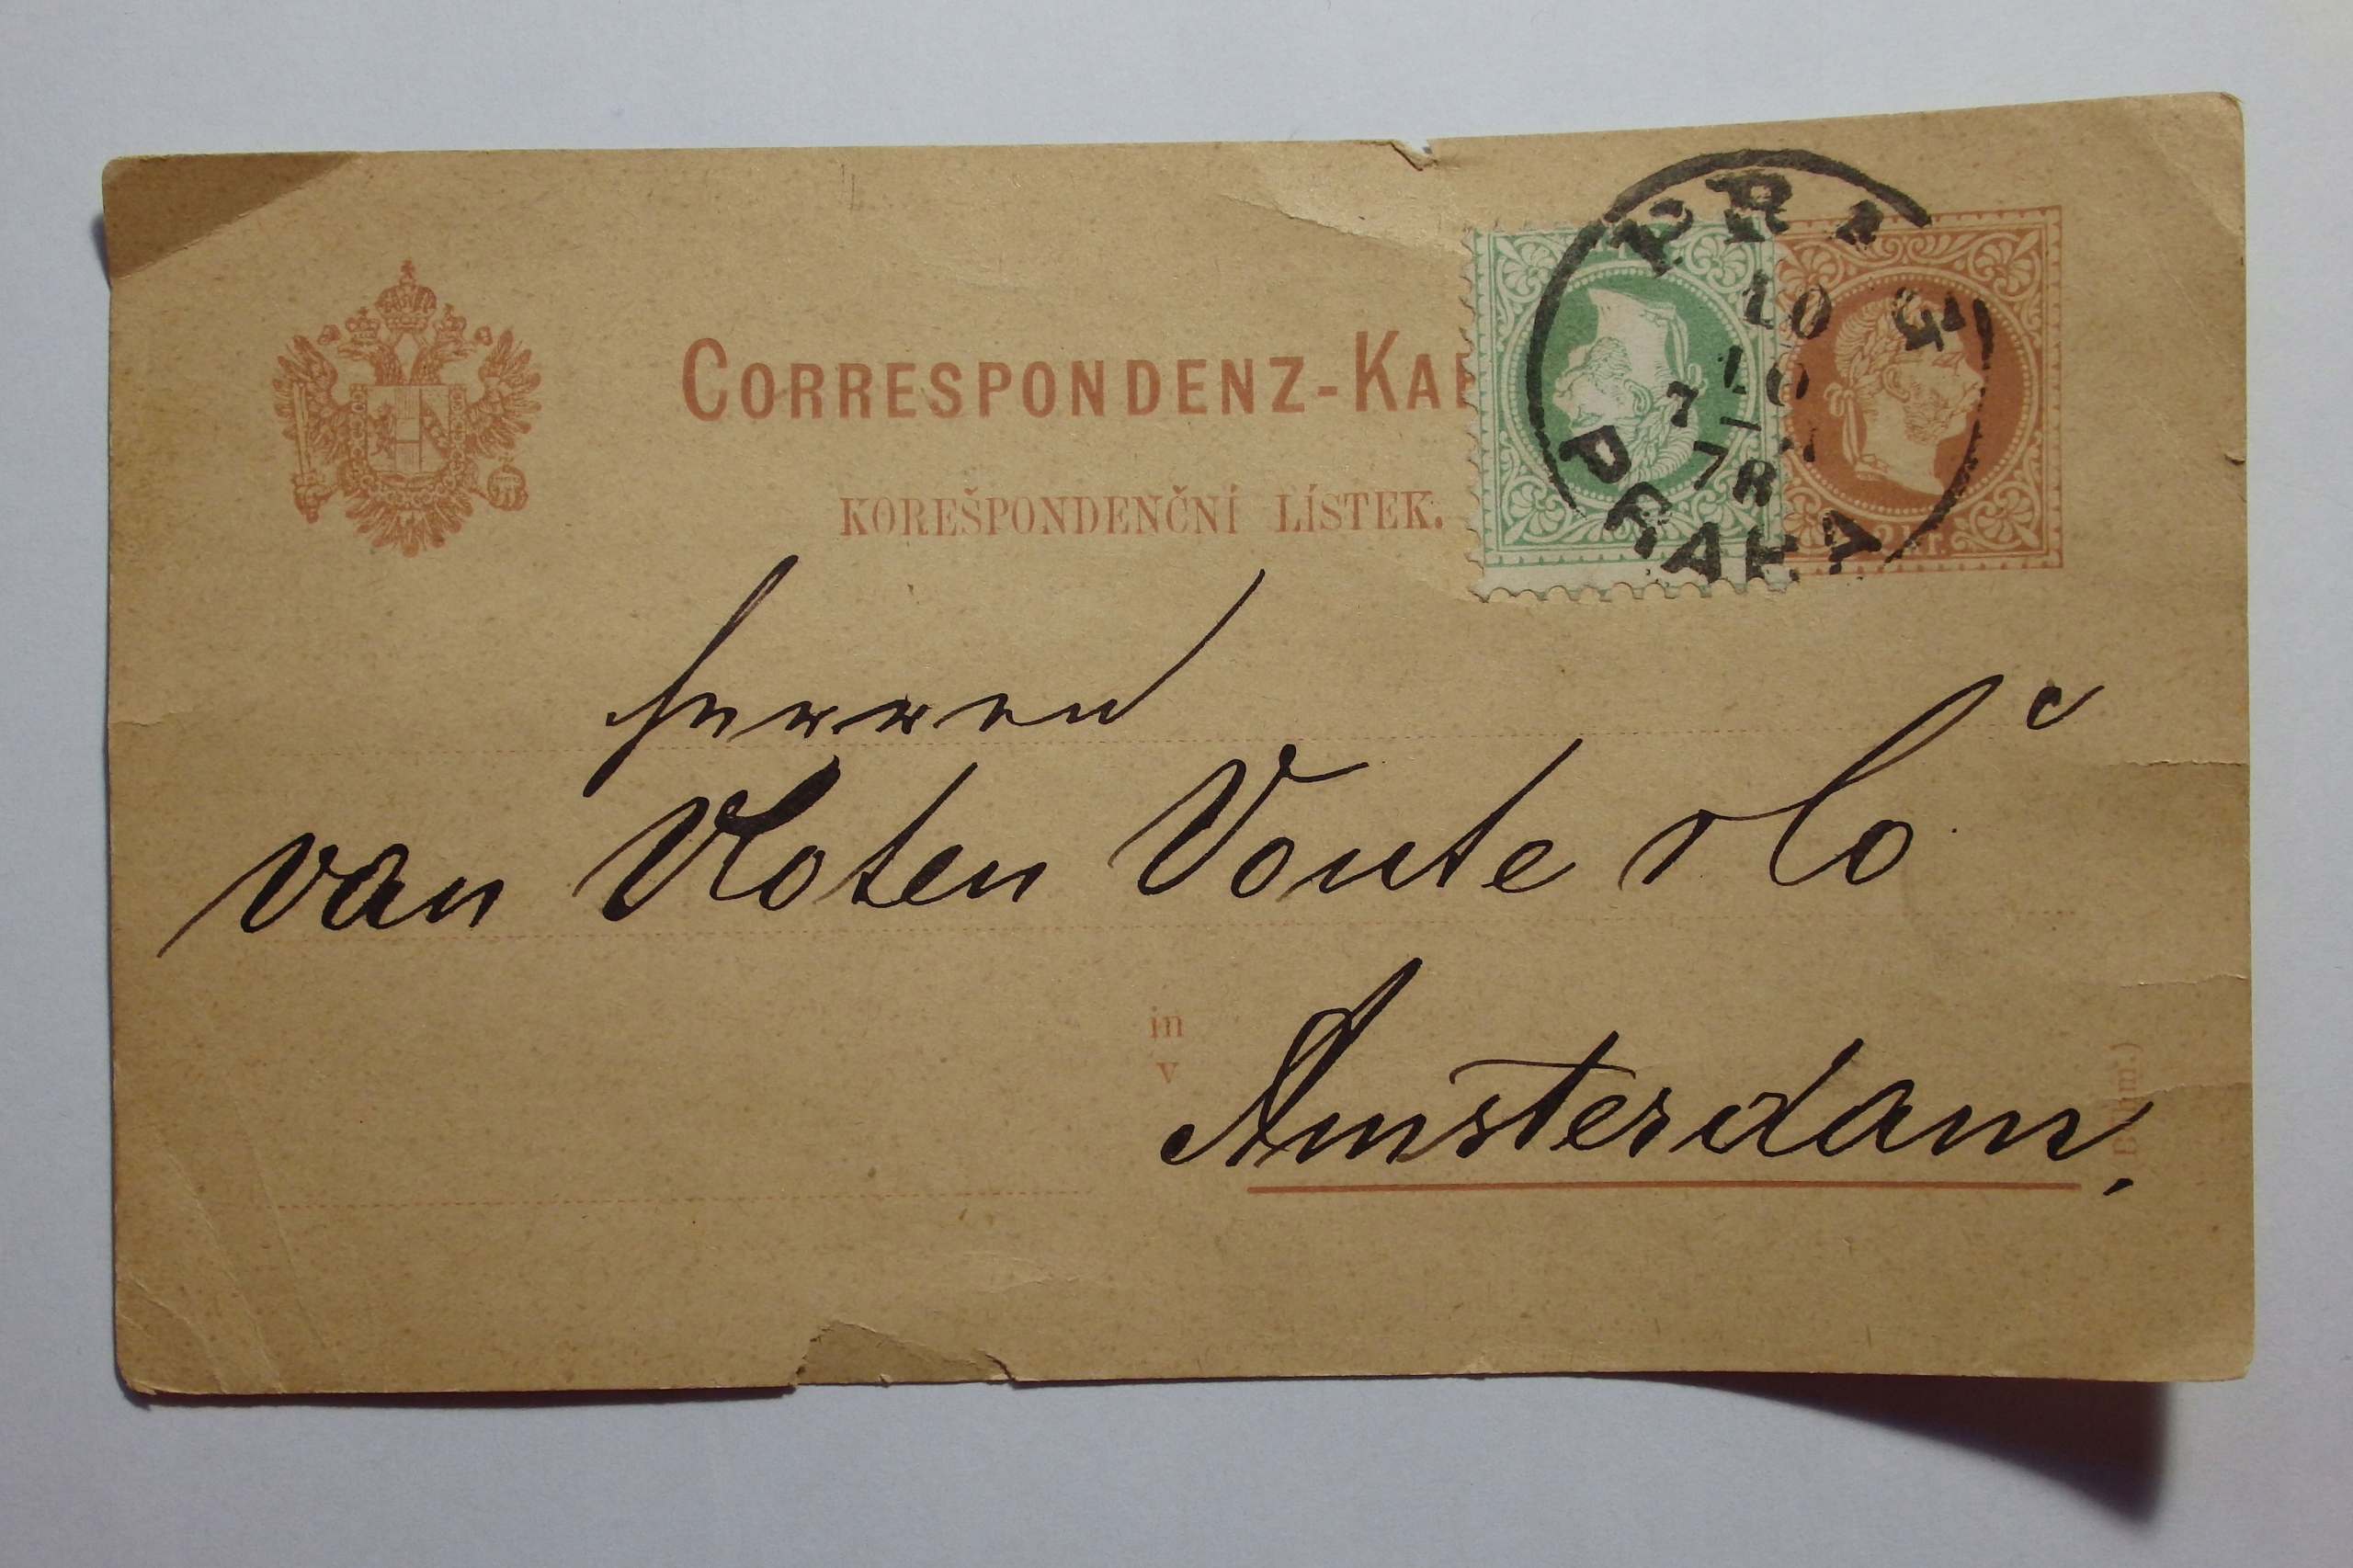 CORRESPONDENZ-KA
KOREŠPONDENČNÍ LÍSTEK.
PRAG
10
10
7
78
PRAHA
Herren
van Vloten Voute & Co
in
v
Amsterdam,